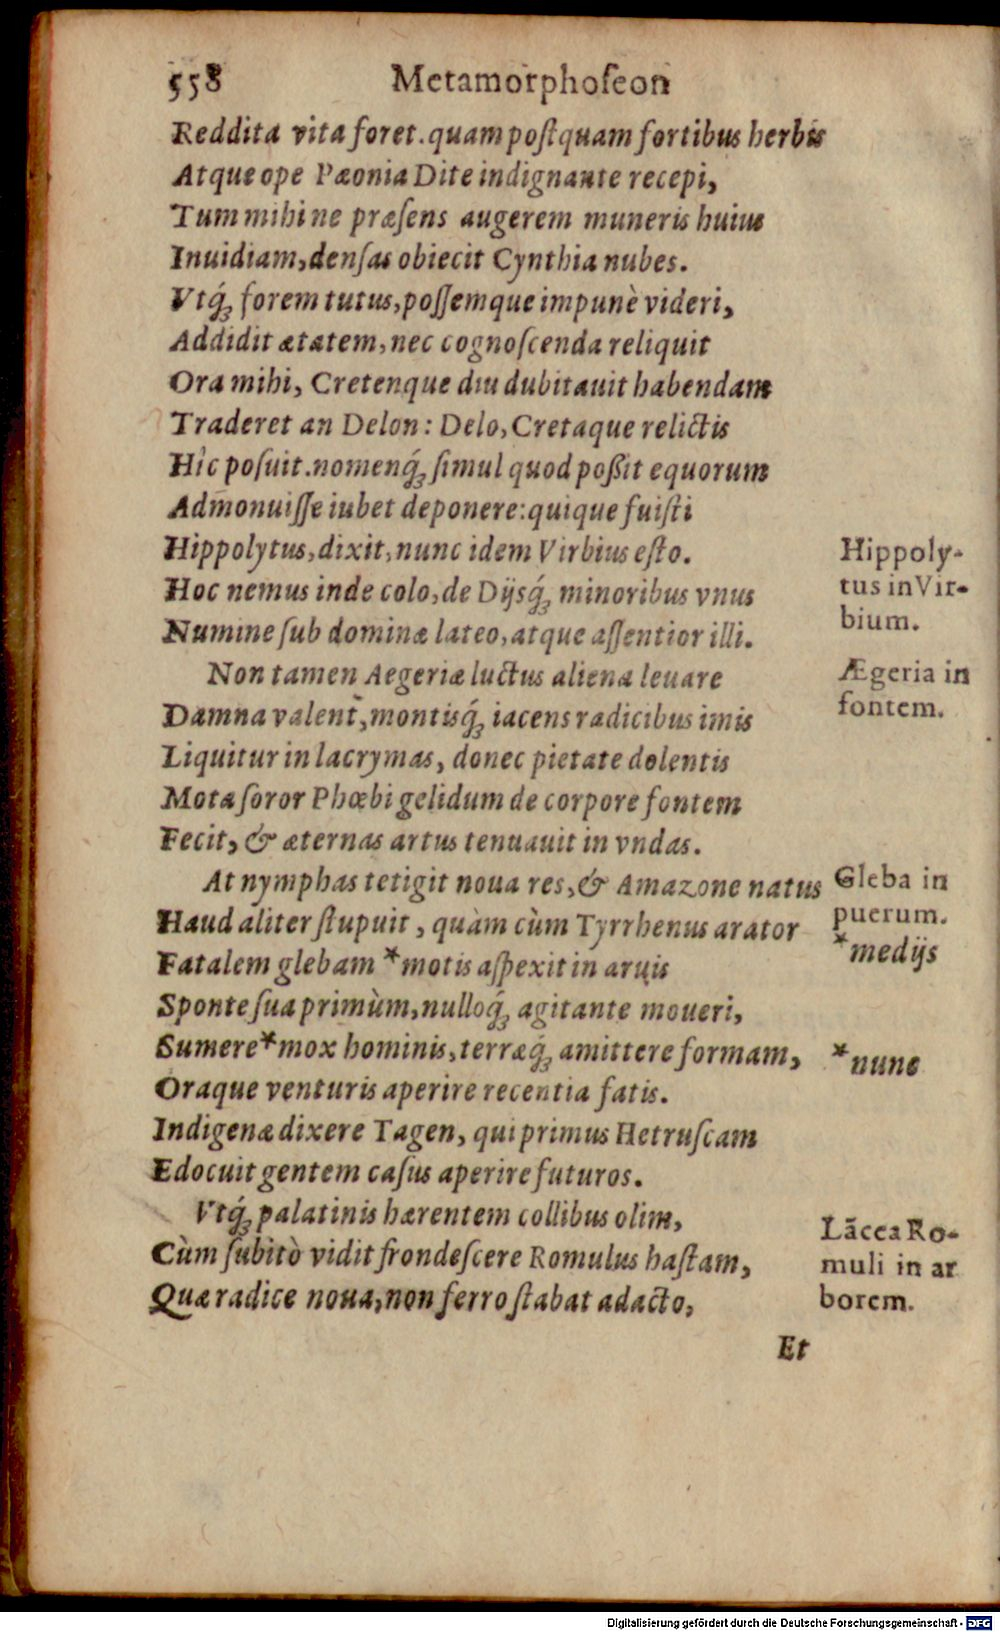 558 Metamorphoſeon
Reddita vita foret. quam poſtquam fortibus herbis
Atque ope Pæonia Dite indignante recepi,
Tum mihi ne præſens augerem muneris huius
Inuidiam, denſas obiecit Cynthia nubes.
Vtq́ꝫ forem tutus, poſſemque impunè videri,
Addidit ætatem, nec cognoſcenda reliquit
Ora mihi, Cretenque diu dubitauit habendam
Traderet an Delon: Delo, Cretaque relictis
Hîc poſuit. nomenq́ꝫ ſimul quod poßit equorum
Admonuiſſe iubet deponere: quique fuiſti
Hippolytus, dixit, nunc idem Virbius eſto.
Hippoly-
tus in Vir-
bium.
Hoc nemus inde colo, de Dijsq́ꝫ minoribus vnus
Numine ſub dominæ lateo, atque aſſentior illi.
Non tamen Aegeriæ luctus aliena leuare
Ægeria in
fontem.
Damna valent, montisq́ꝫ iacens radicibus imis
Liquitur in lacrymas, donec pietate dolentis
Mota ſoror Phœbi gelidum de corpore fontem
Fecit, & æternas artus tenuauit in vndas.
At nymphas tetigit noua res, & Amazone natus
Gleba in
puerum.
Haud aliter ſtupuit, quàm cùm Tyrrhenus arator
Fatalem glebam *motis aſpexit in aruis
*medijs
Sponte ſua primùm, nulloq́ꝫ agitante moueri,
Sumere *mox hominis, terræq́ꝫ amittere formam,
*nunc
Oraque venturis aperire recentia fatis.
Indigenæ dixere Tagen, qui primus Hetruſcam
Edocuit gentem caſus aperire futuros.
Vtq́ꝫ palatinis hærentem collibus olim,
Cùm ſubitò vidit frondeſcere Romulus haſtam,
Lãcea Ro-
muli in ar
borem.
Quæ radice noua, non ferro ſtabat adacto,
Et
Digitalisierung gefördert durch die Deutsche Forschungsgemeinschaft - DFG